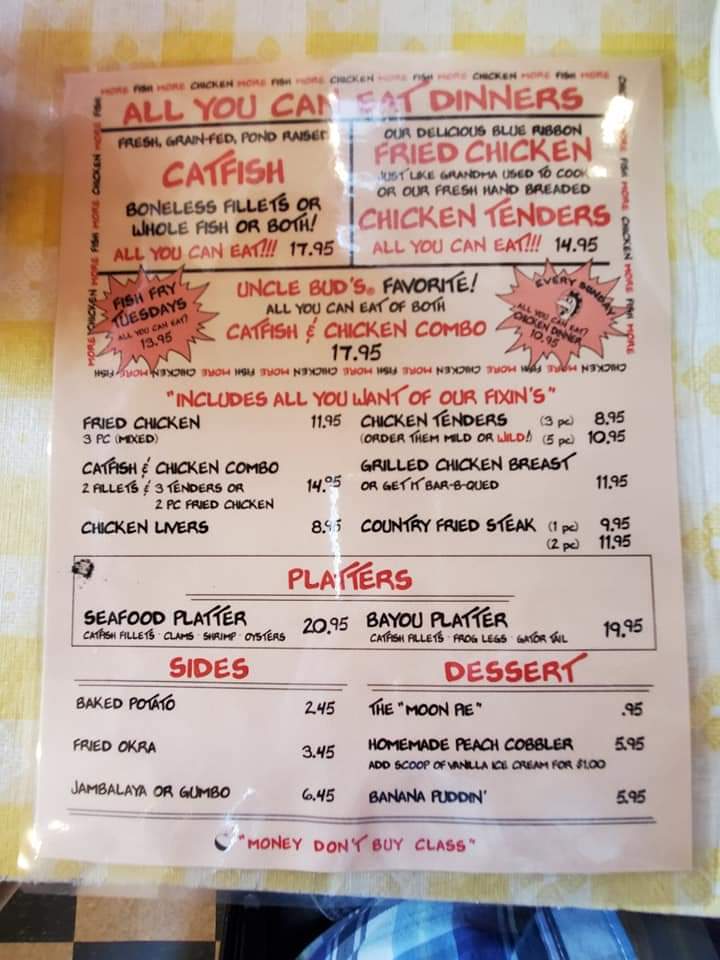 MORE FISH MORE CHICKEN MORE FISH MORE CHICKEN MORE FISH MORE CHICKEN MORE FISH MORE
ALL YOU CAN EAT DINNERS
FRESH, GRAIN-FED, POND RAISED
CATFISH
BONELESS FILLETS OR
WHOLE FISH OR BOTH!
ALL YOU CAN EAT!!! 17.95
OUR DELICIOUS BLUE RIBBON
FRIED CHICKEN
JUST LIKE GRANDMA USED TO COOK
OR OUR FRESH HAND BREADED
CHICKEN TENDERS
ALL YOU CAN EAT!!! 14.95
FISH FRY
TUESDAYS
ALL YOU CAN EAT!
13.95
UNCLE BUD'S® FAVORITE!
ALL YOU CAN EAT OF BOTH
CATFISH & CHICKEN COMBO
17.95
EVERY SUNDAY
ALL YOU CAN EAT
CHICKEN DINNER
10.95
MORE CHICKEN MORE FISH MORE CHICKEN MORE FISH
CHICKEN MORE FISH MORE CHICKEN MORE FISH MORE
CHICKEN MORE FISH MORE CHICKEN MORE FISH MORE CHICKEN MORE FISH MORE CHICKEN MORE FISH
"INCLUDES ALL YOU WANT OF OUR FIXIN'S"
FRIED CHICKEN 11.95
3 PC (MIXED)
CATFISH & CHICKEN COMBO
2 FILLETS & 3 TENDERS OR 14.95
2 PC FRIED CHICKEN
CHICKEN LIVERS 8.95
CHICKEN TENDERS (3 pc) 8.95
(ORDER THEM MILD OR WILD!) (5 pc) 10.95
GRILLED CHICKEN BREAST
OR GET IT BAR-B-QUED 11.95
COUNTRY FRIED STEAK (1 pc) 9.95
(2 pc) 11.95
PLATTERS
SEAFOOD PLATTER 20.95
CATFISH FILLETS · CLAMS · SHRIMP · OYSTERS
BAYOU PLATTER 19.95
CATFISH FILLETS · FROG LEGS · GATOR TAIL
SIDES
BAKED POTATO 2.45
FRIED OKRA 3.45
JAMBALAYA OR GUMBO 6.45
DESSERT
THE "MOON PIE" .95
HOMEMADE PEACH COBBLER 5.95
ADD SCOOP OF VANILLA ICE CREAM FOR $1.00
BANANA PUDDIN' 5.95
"MONEY DON'T BUY CLASS"